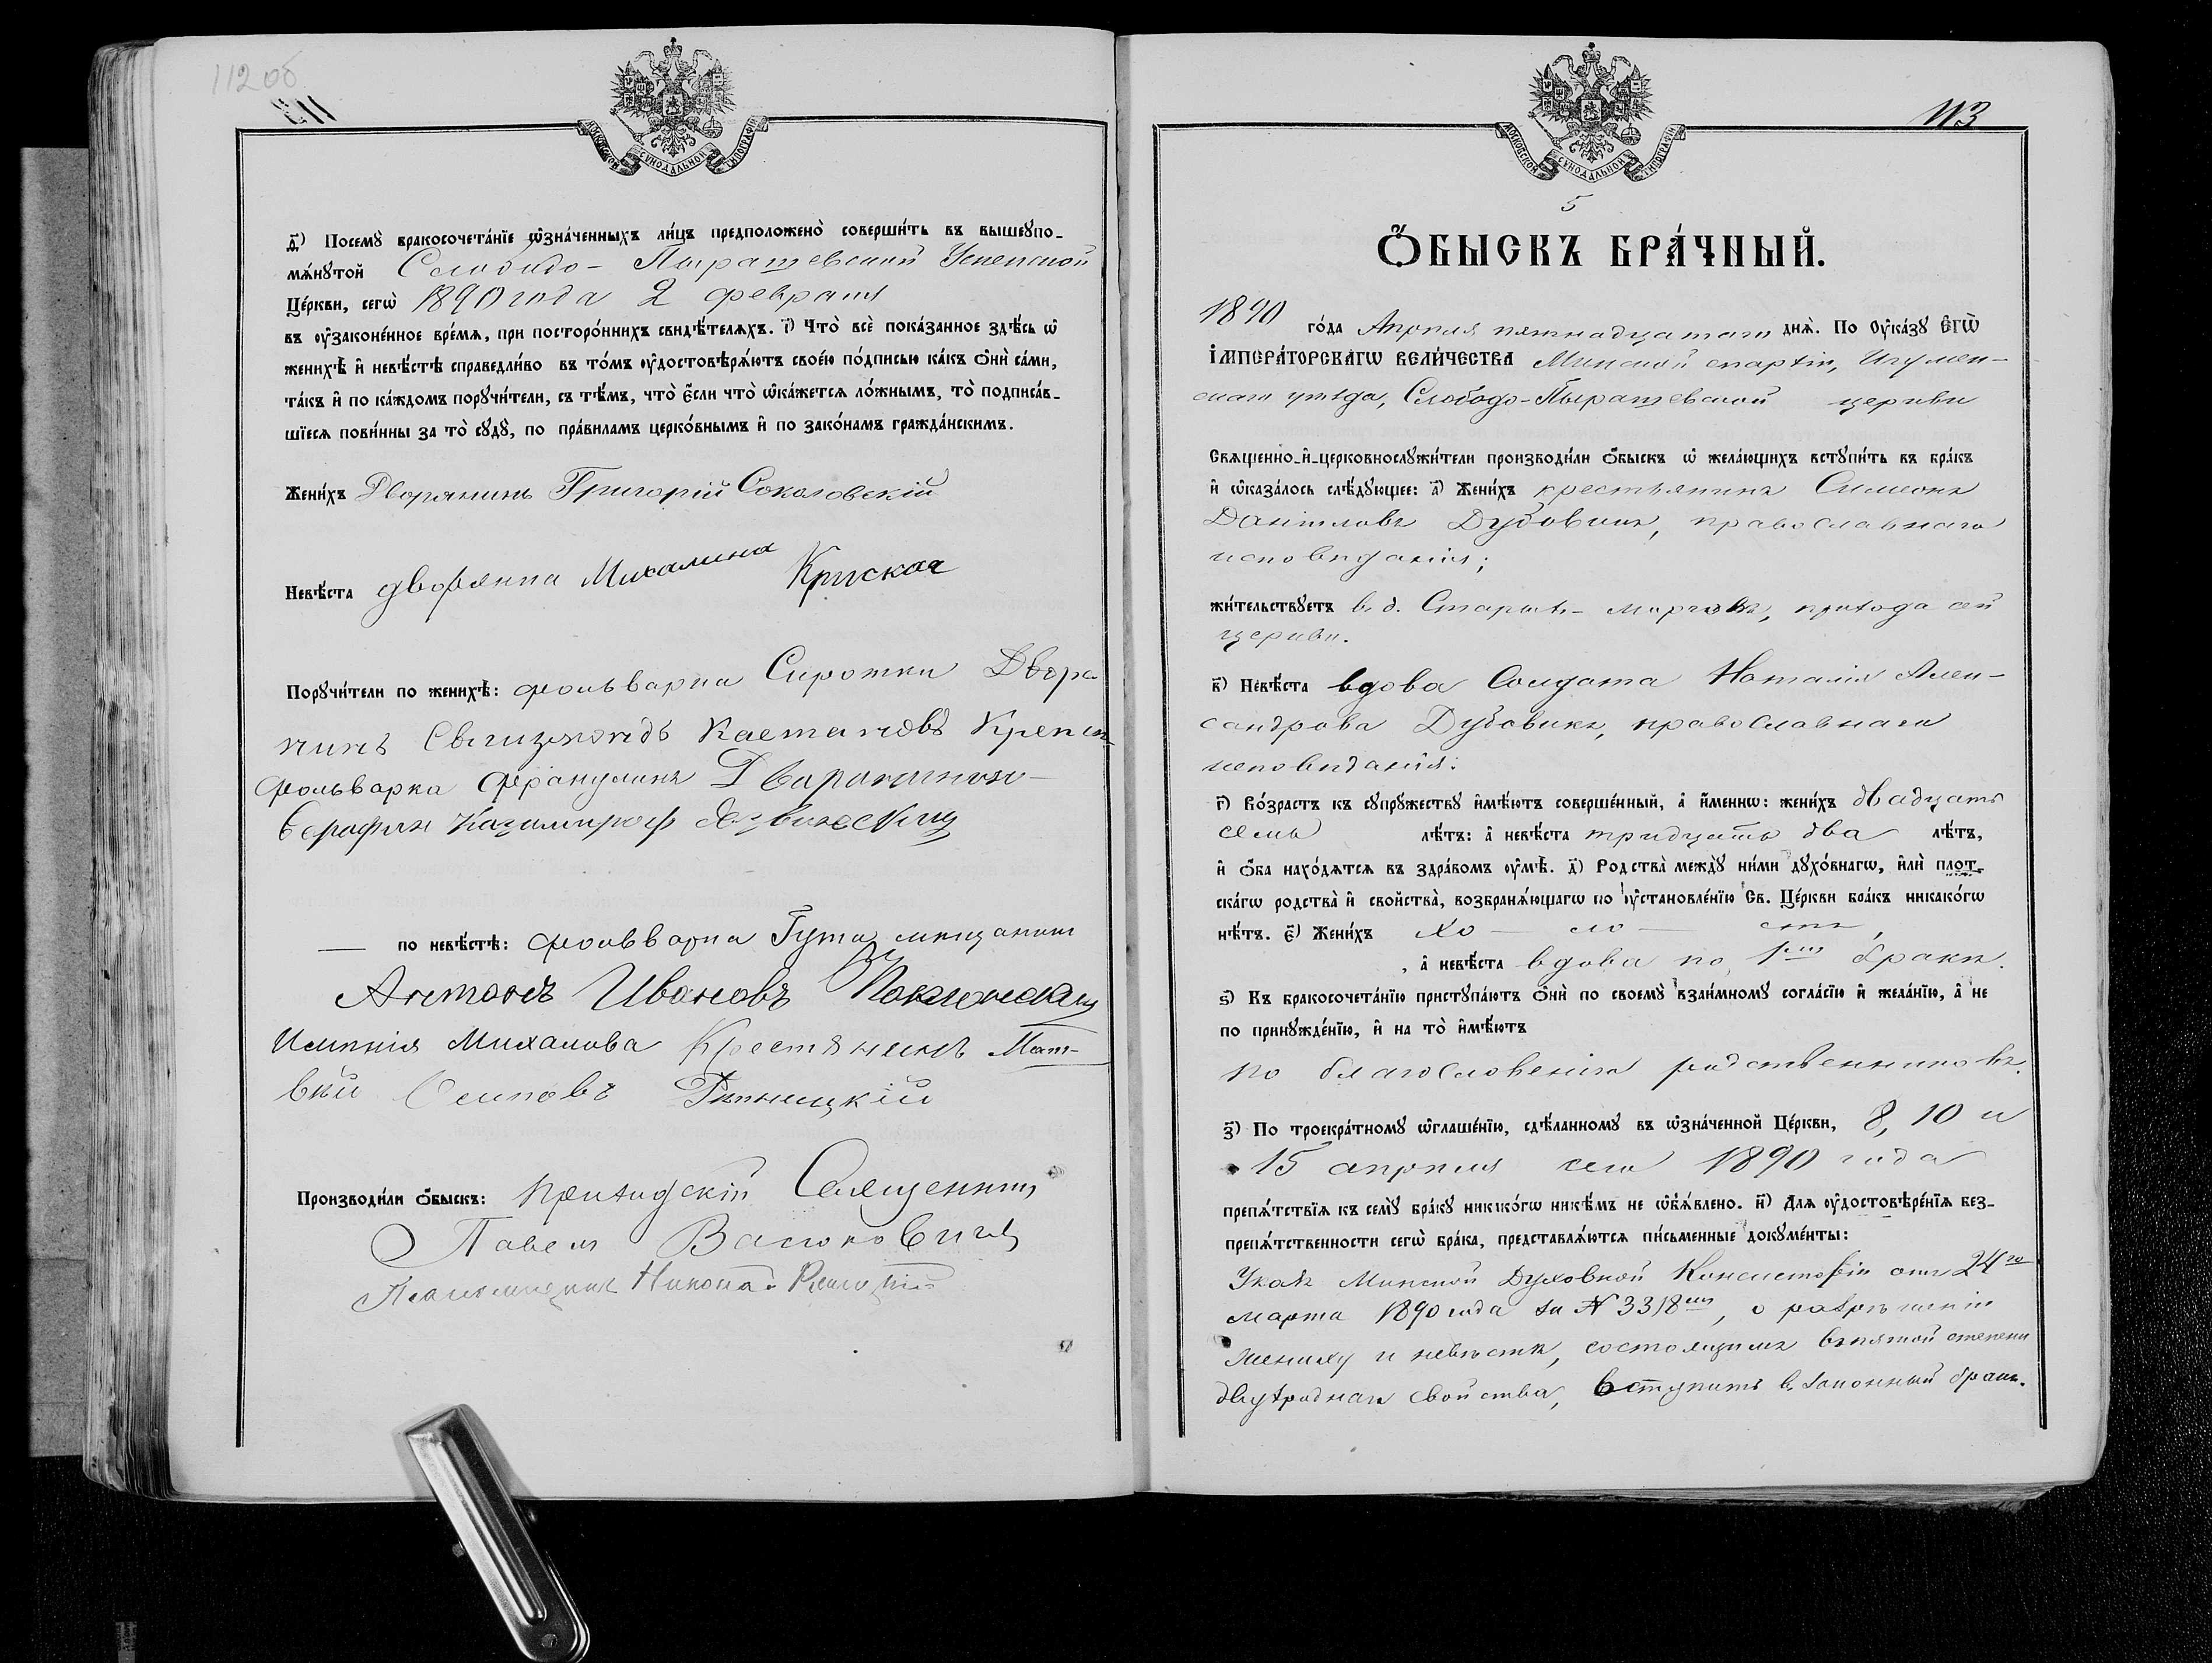 112 об
МОСКОВСКОЙ СѴНОДАЛЬНОЙ ТИПОГРАФІИ
д҃) Посемꙋ̀ бракосочета́нїе ѡ҆зна́ченныхъ ли́цъ предположено̀ соверши́ть въ вышеꙋпо-
мѧ́нꙋтой Слободо-Пырашевской Успенской
Це́ркви, сегѡ̀ 1890 года 2 февраля
въ ѹ҆законе́нное вре́мѧ, при посторо́ннихъ свидѣ́телѧхъ. і҃) Что̀ всѐ пока́занное здѣ́сь ѡ҆
женихѣ̀ и҆ невѣ́стѣ справедли́во въ то́мъ ѹ҆достовѣрѧ́ютъ свое́ю по́дписью ка́къ ѻ҆нѝ са́ми,
та́къ и҆ по ка́ждомъ порꙋчи́тели, съ тѣ́мъ, что̀ є҆́сли что̀ ѡ҆ка́жетсѧ ло́жнымъ, то̀ подписа́в-
шїесѧ пови́нны за то̀ сꙋдꙋ̀, по пра́виламъ церко́внымъ и҆ по зако́намъ гражда́нскимъ.
Жени́хъ Дворянинъ Григорій Соколовскій
Невѣ́ста дворянка Михалина
Порꙋчи́тели по женихѣ̀: фольварка Сиротки Дворя
нинъ
фольварка Францулинъ Дваранинъ
Серафин Казимиров
— по невѣ́стѣ: фольварка Гута мещанин
Антонъ Ивановъ
Имѣнія Михалова Крестянинъ Мат-
вѣй Осиповъ
Производи́ли ѻ҆́быскъ: Приходскій Священникъ
Павелъ Васюковичъ
Псаломщикъ Николай
113
МОСКОВСКОЙ СѴНОДАЛЬНОЙ ТИПОГРАФІИ
5
Ѻ҆́БЫСКЪ БРА́ЧНЫЙ.
1890 го́да Апрѣля пятнадцатаго днѧ̀. По Оу҆ка́зꙋ Є҆ГѠ̀
І҆МПЕРА́ТОРСКАГѠ ВЕЛИ́ЧЕСТВА Минской епархіи, Игумен-
скаго уѣзда, Слободо-Пырашевской церкви
Свѧще́нно-и҆-церковнослꙋжи́тели производи́ли ѻ҆́быскъ ѡ҆ жела́ющихъ встꙋпи́ть въ бра́къ
и҆ ѡ҆каза́лось слѣ́дꙋющее: а҃) Жени́хъ крестьянинъ Симеонъ
Даніиловъ Дубовикъ, православнаго
исповѣданія;
жи́тельствꙋетъ в д. прихода сей
церкви.
в҃) Невѣ́ста вдова Солдата Наталія Алек-
сандрова Дубовикъ, православнаго
исповѣданія:
г҃) Во́зрастъ къ сꙋпрꙋ́жествꙋ и҆мѣ́ютъ соверше́нный, а҆ и҆́меннѡ: жени́хъ двадцать
семь лѣ́тъ: а҆ невѣ́ста тридцать два лѣ́тъ,
и҆ ѻ҆́ба нахо́дѧтсѧ въ здра́вомъ ѹ҆мѣ̀. д҃) Родства̀ междꙋ̀ ни́ми дꙋхо́внагѡ, и҆лѝ плот-
ска́гѡ родства̀ и҆ сво́йства̀, возбранѧ́ющагѡ по ѹ҆становле́нїю Св. Це́ркви бра́къ никако́гѡ
нѣ́тъ. є҃) Жени́хъ хо — ло — стъ,
, а҆ невѣ́ста вдова по 1мъ бракѣ.
ѕ҃) Къ бракосочета́нїю пристꙋпа́ютъ ѻ҆нѝ по своемꙋ̀ взаи́мномꙋ согла́сїю и҆ жела́нїю, а҆ не
по принꙋжде́нїю, и҆ на то̀ и҆мѣ́ютъ
по благословенію родственниковъ.
з҃) По троекра́тномꙋ ѡ҆глаше́нїю, сдѣ́ланномꙋ въ ѡ҆зна́ченной Це́ркви, 8, 10 и
15 апрѣля сего 1890 года
препѧ́тствїѧ къ семꙋ̀ бра́кꙋ никако́гѡ никѣ́мъ не ѡ҆б̾ѧ́влено. и҃) Для ѹ҆достовѣре́нїѧ без-
препѧ́тственности сегѡ̀ бра́ка, представлѧ́ютсѧ пи́сьменные докꙋме́нты:
Указъ Минской Духовной Консисторіи отъ 24го
марта 1890 года за № 3318мъ, о разрѣшеніи
жениху и невѣстѣ, состоящимъ въ пятой степени
двухроднаго свойства, вступить въ законный бракъ.